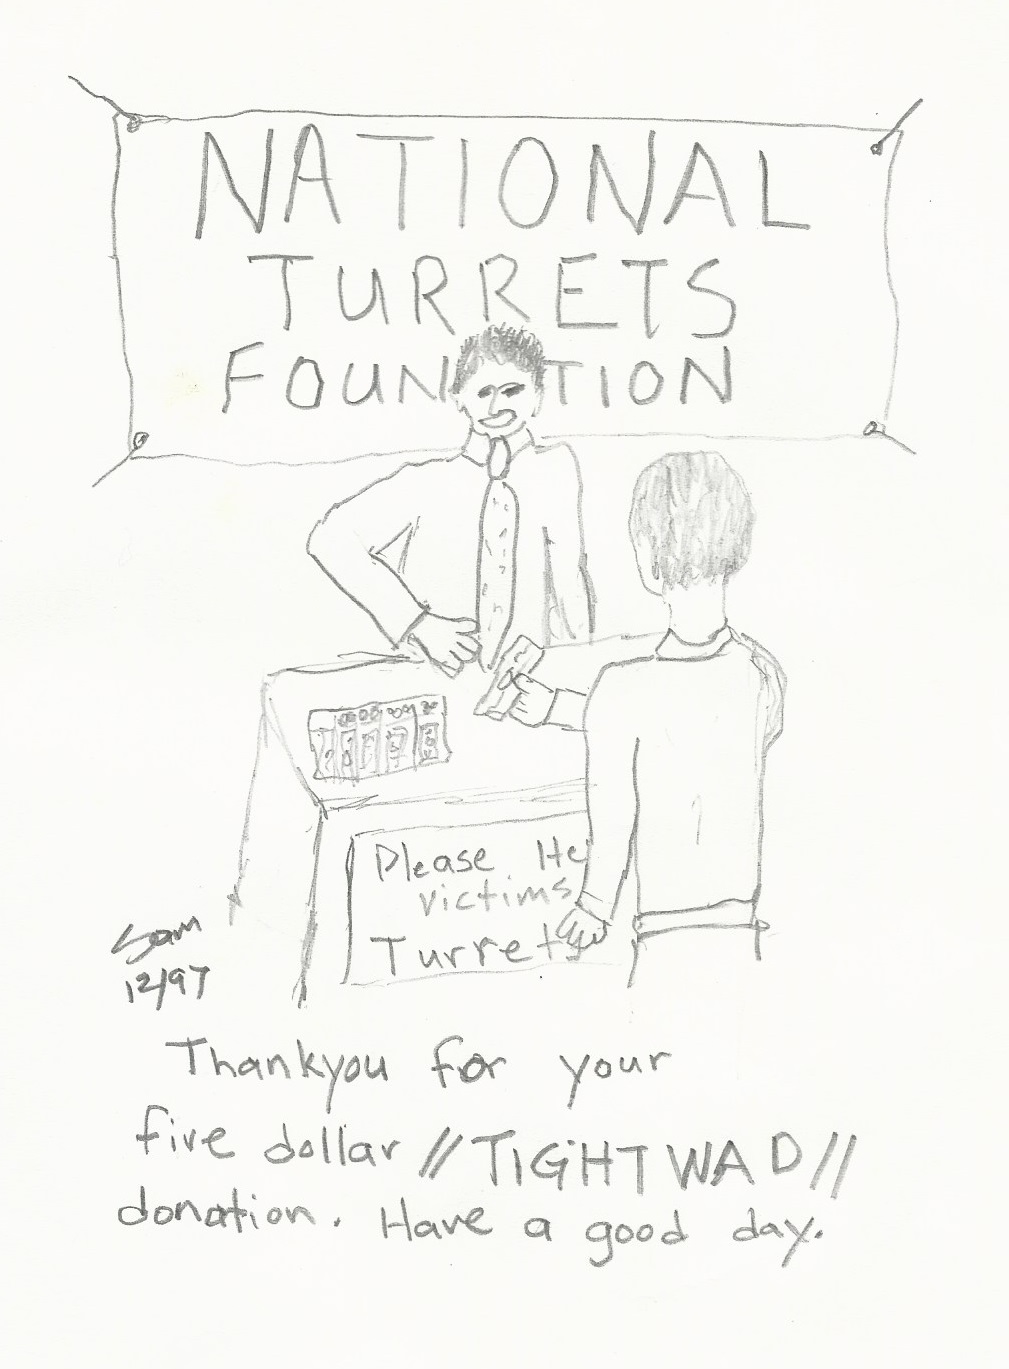 NATIONAL
TURRETS
FOUN TION
Please He
victims
Turret
Sam
12/97
Thankyou for your
five dollar //TIGHTWAD//
donation. Have a good day.